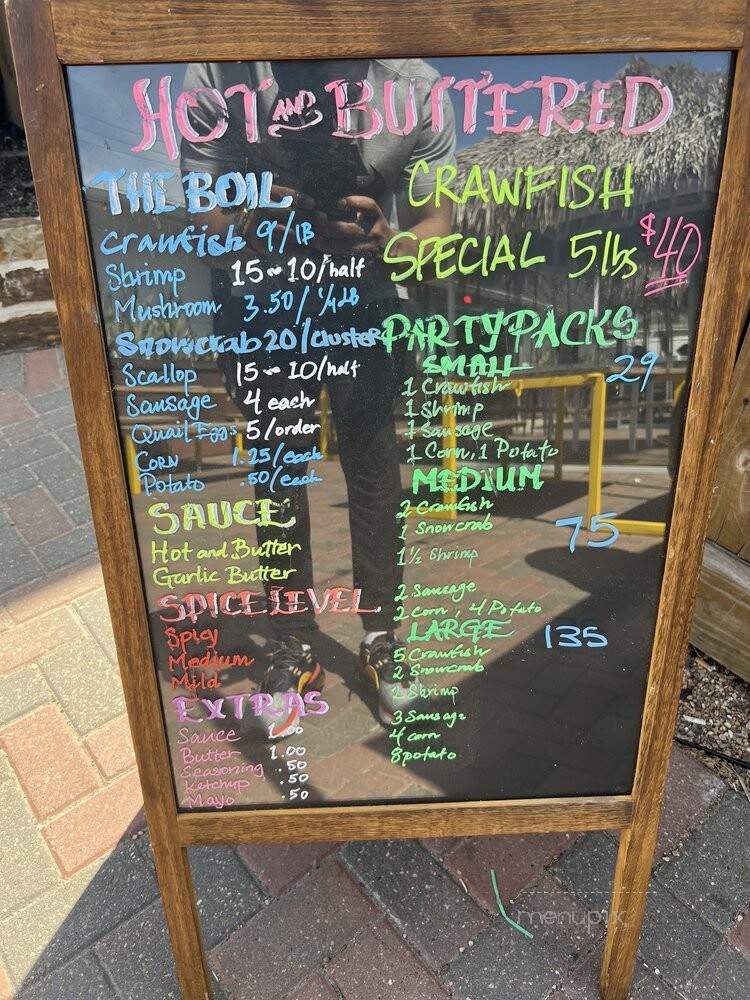 HOT AND BUTTERED
THE BOIL
Crawfish 9/lB
Shrimp 15 ~ 10/half
Mushroom 3.50/ 1/4lB
Snowcrab 20/cluster
Scallop 15 ~ 10/half
Sausage 4 each
Quail Eggs 5/order
CORN 1.25/each
Potato .50/each
SAUCE
Hot and Butter
Garlic Butter
SPICE LEVEL
Spicy
Medium
Mild
EXTRAS
Sauce 1.00
Butter 1.00
Seasoning .50
Ketchup .50
Mayo .50
CRAWFISH
SPECIAL 5lbs $40
PARTY PACKS
SMALL 29
1 Crawfish
1 Shrimp
1 Sausage
1 Corn, 1 Potato
MEDIUM
2 Crawfish
1 Snowcrab 75
1 1/2 Shrimp
2 Sausage
2 Corn, 4 Potato
LARGE 135
5 Crawfish
2 Snowcrab
2 Shrimp
3 Sausage
4 corn
8 potato
menupix